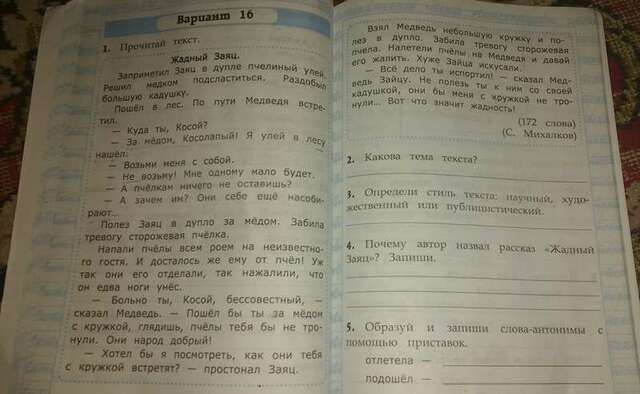 Вариант 16
1. Прочитай текст.
Жадный Заяц.
Заприметил Заяц в дупле пчелиный улей.
Решил медком подсластиться. Раздобыл
большую кадушку.
Пошёл в лес. По пути Медведя встре-
тил.
— Куда ты, Косой?
— За мёдом, Косолапый! Я улей в лесу
нашёл.
— Возьми меня с собой.
— Не возьму! Мне одному мало будет.
— А пчёлкам ничего не оставишь?
— А зачем им? Они себе ещё насоби-
рают...
Полез Заяц в дупло за мёдом. Забила
тревогу сторожевая пчёлка.
Напали пчёлы всем роем на неизвестно-
го гостя. И досталось же ему от пчёл! Уж
так они его отделали, так нажалили, что
он едва ноги унёс.
— Больно ты, Косой, бессовестный, —
сказал Медведь. — Пошёл бы ты за мёдом
с кружкой, глядишь, пчёлы тебя бы не тро-
нули. Они народ добрый!
— Хотел бы я посмотреть, как они тебя
с кружкой встретят? — простонал Заяц.
Взял Медведь небольшую кружку и по-
лез в дупло. Забила тревогу сторожевая
пчела. Налетели пчёлы на Медведя и давай
его жалить. Хуже Зайца искусали.
— Всё дело ты испортил! — сказал Мед-
ведь Зайцу. Не полезь ты к ним со своей
кадушкой, они бы меня с кружкой не тро-
нули... Вот что значит жадность!
(172 слова)
(С. Михалков)
2. Какова тема текста?
3. Определи стиль текста: научный, худо-
жественный или публицистический.
4. Почему автор назвал рассказ «Жадный
Заяц»? Запиши.
5. Образуй и запиши слова-антонимы с
помощью приставок.
отлетела —
подошёл —